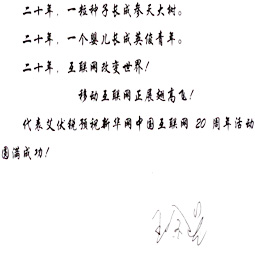 二十年，一粒种子长成参天大树。
二十年，一个婴儿长成英俊青年。
二十年，互联网改变世界！
移动互联网正展翅高飞！
代表艾伏锐预祝新华网中国互联网 20 周年活动
圆满成功！